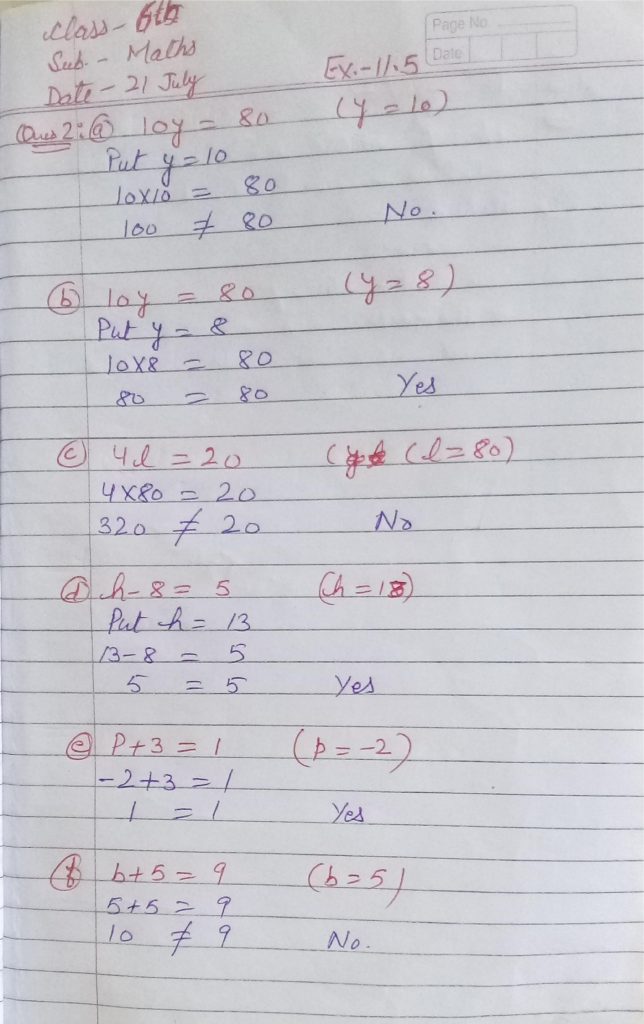 Class - 6th
Page No.
Sub. - Maths
Date
Date - 21 July
Ex. - 11.5
Ques 2: (a) 10y = 80 (y = 10)
Put y = 10
10x10 = 80
100 ≠ 80 No.
(b) 10y = 80 (y = 8)
Put y = 8
10x8 = 80
80 = 80 Yes
(c) 4l = 20 ( (l = 80)
4x80 = 20
320 ≠ 20 No
(d) h - 8 = 5 (h = 13)
Put h = 13
13 - 8 = 5
5 = 5 Yes
(e) P + 3 = 1 (p = -2)
-2 + 3 = 1
1 = 1 Yes
(f) b + 5 = 9 (b = 5)
5 + 5 = 9
10 ≠ 9 No.